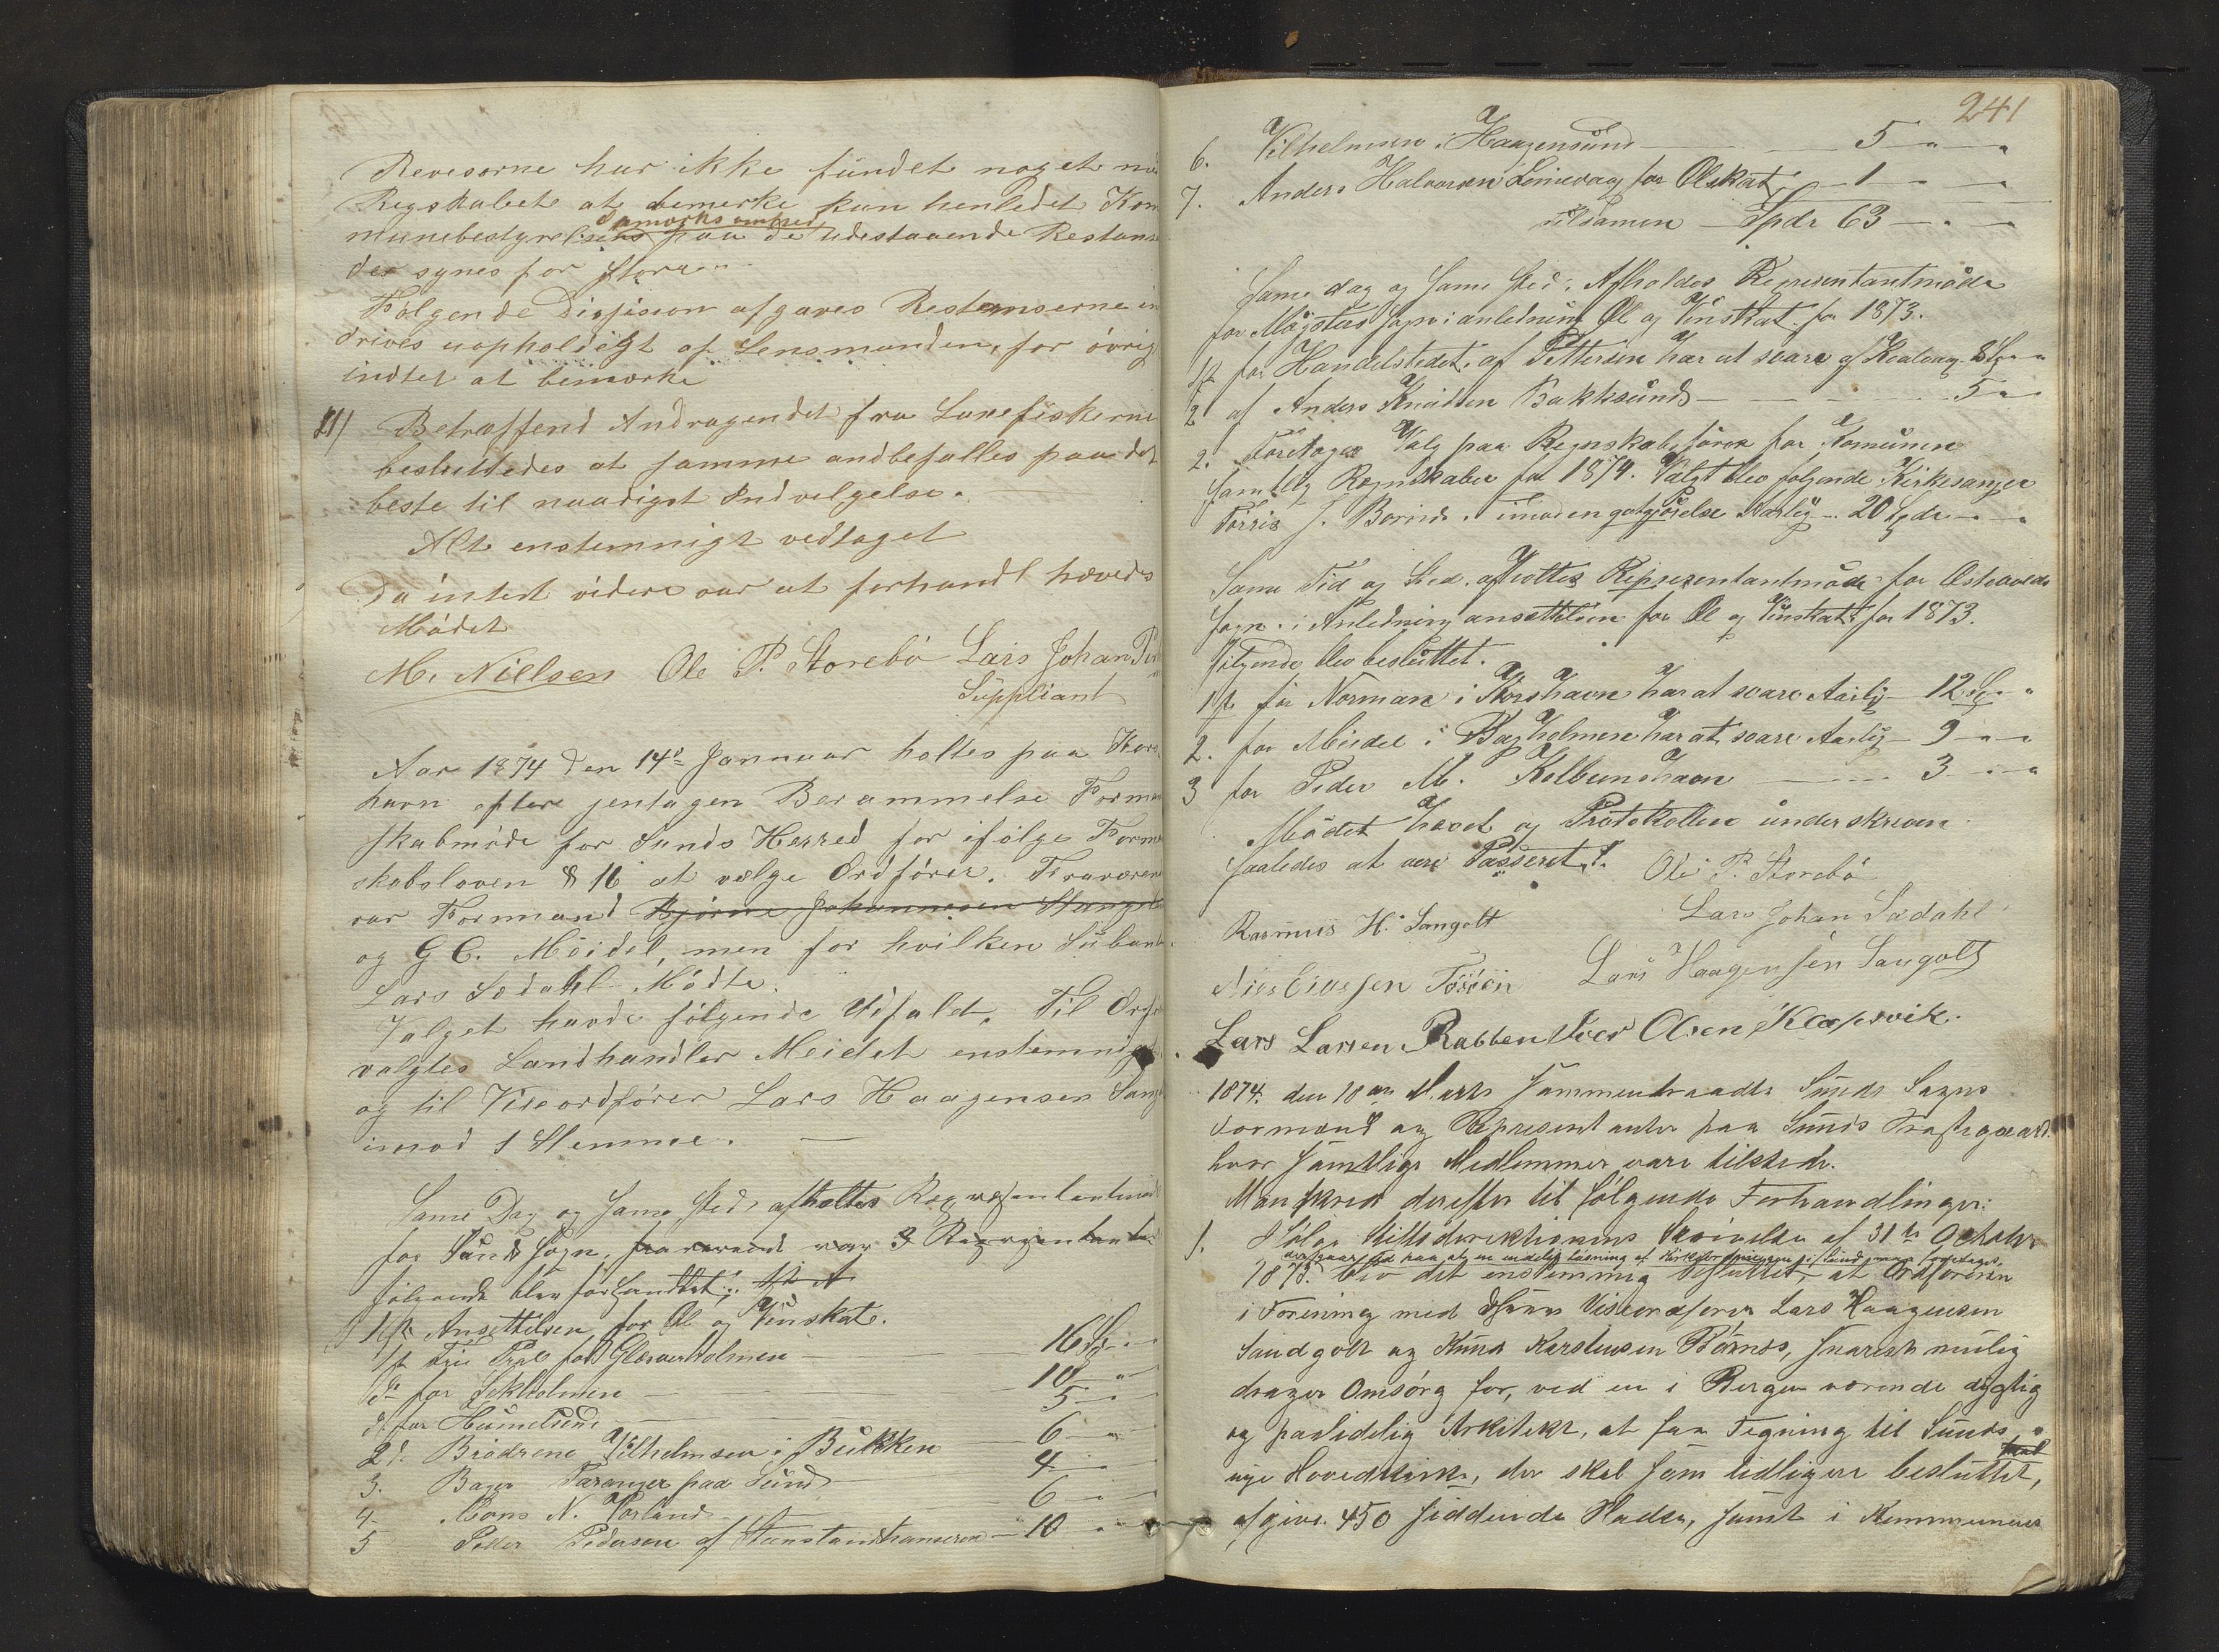 Revesorne har ikke fundet noget
Regskabet at bemerke kun henledet Kom
Opmerksomhed
munebestyrelsens paa de udestaaende Restans
der synes for store
Følgende Disision afgaves Restanserne in
drives uopholdeligt af Lensmanden, for øvrig
indtet at bemærke
21) Betræffend Andragendet fra Lonefiskerne
besluttedes at samme andbefalles paa det
beste til naadigst Indvelgelse.
Alt enstemnigt vedtaget
Da intet videre var at forhandl hæveds
Mødet
M. Nielsen Ole P. Storebø Lars Johan
Suppliant
Aar 1874 den 14de Januar holtes paa Kors
havn efter jentagen Berammelse Formæn
skabmøde for Sunds Herred for ifølge Form
skabsloven § 16 at vælge Ordfører. Fraværen
var Formand Bjørne Johannesen
og G C. Møidel, men for hvilken
Lars Sædahl Mødte.
Valget havde følgende Udfaldt. Til Ordf
valgtes Landhandler Meidel enstemnigt
og til Viseordfører Lars Haagensen Sang
imod 1 Stemme.
Same Dag og same sted, afholtes Reprepresentantmød
for Sunds Sogn, fraværende var 3 Representanter
følgende blev forhandlet;
1ste Ansettelsen for Øl og Vinskat.
1st for Glesverholmen 16 Sp
do for Sekholmen 10
do for 5
2d. Brødrene Vilhelmsen i Bukken 6
3. Bager Faranger paa Sund 4
4. Mons N. Vorland 6
5 Peder Pedersen af 10
241
6. Vilhelmsen i Haagensund 5
7. Anders Halvorsen Lønevaag for Ølskat 1
tilsamen Spdr 63
Same dag og same sted. Afholdes Representantmøde
for Møgsters sogn i anledning Øl og Vinskat for 1873.
1st for Handelstedet af Pettersen har at svare af
2 af Anders Knudsen Bakksund 5
2. Foretages Valg paa Regnskabsfører for Komunen
samtlig Regnskaber for 1874. Valgt blev følgende Kirkesanger
Torris J. imod en godtgjørelse Aarlig 20 Spdr
Same Tid og Sted. afholtes Representantmøde for Østevolds
Sogn. i Anledning ansettelsen for Øl og Vinskat for 1873.
følgende blev besluttet.
1st for Norman i Korshavn har at svare Aarlig 12 Sp
2. for Meidel i Bagholmen har at svare Aarlig 9
3 for Peder M. Kolbeinshavn 3
Mødet hævet og Protokollen underskreven
saaledes at være Passeret.
Ole P. Storebø
Rasmus H. Sangolt Lars Johan Sædahl
Lars Haagensen Sangolt
Lars Larsen Rabben Iver Olsen Klepsvik.
1874. den 18de Marts sammentraadte Sunds Sogns
Formænd og Representanter paa Sunds Prestegaard
hvor samtlige Medlemmer vare tilstede.
Man skred derefter til følgende Forhandlinger:
1. Ifølge Stiftsdirektionens Skrivelse af 31te Octobr
1873. blev det enstemmig besluttet, at Ordføreren
i Forening med Viseordfører Lars Haagensen
Sandgolt og Knud Karstensen Tørnes, snarest mulig
drager Omsorg for, ved en i Bergen værende dygtig
og paalidelig Arkitekt, at faa Tegning til Sunds
nye Hovedkirke, der skal som tidligere besluttet,
afgive 450 siddende Pladse, samt i Kommunens